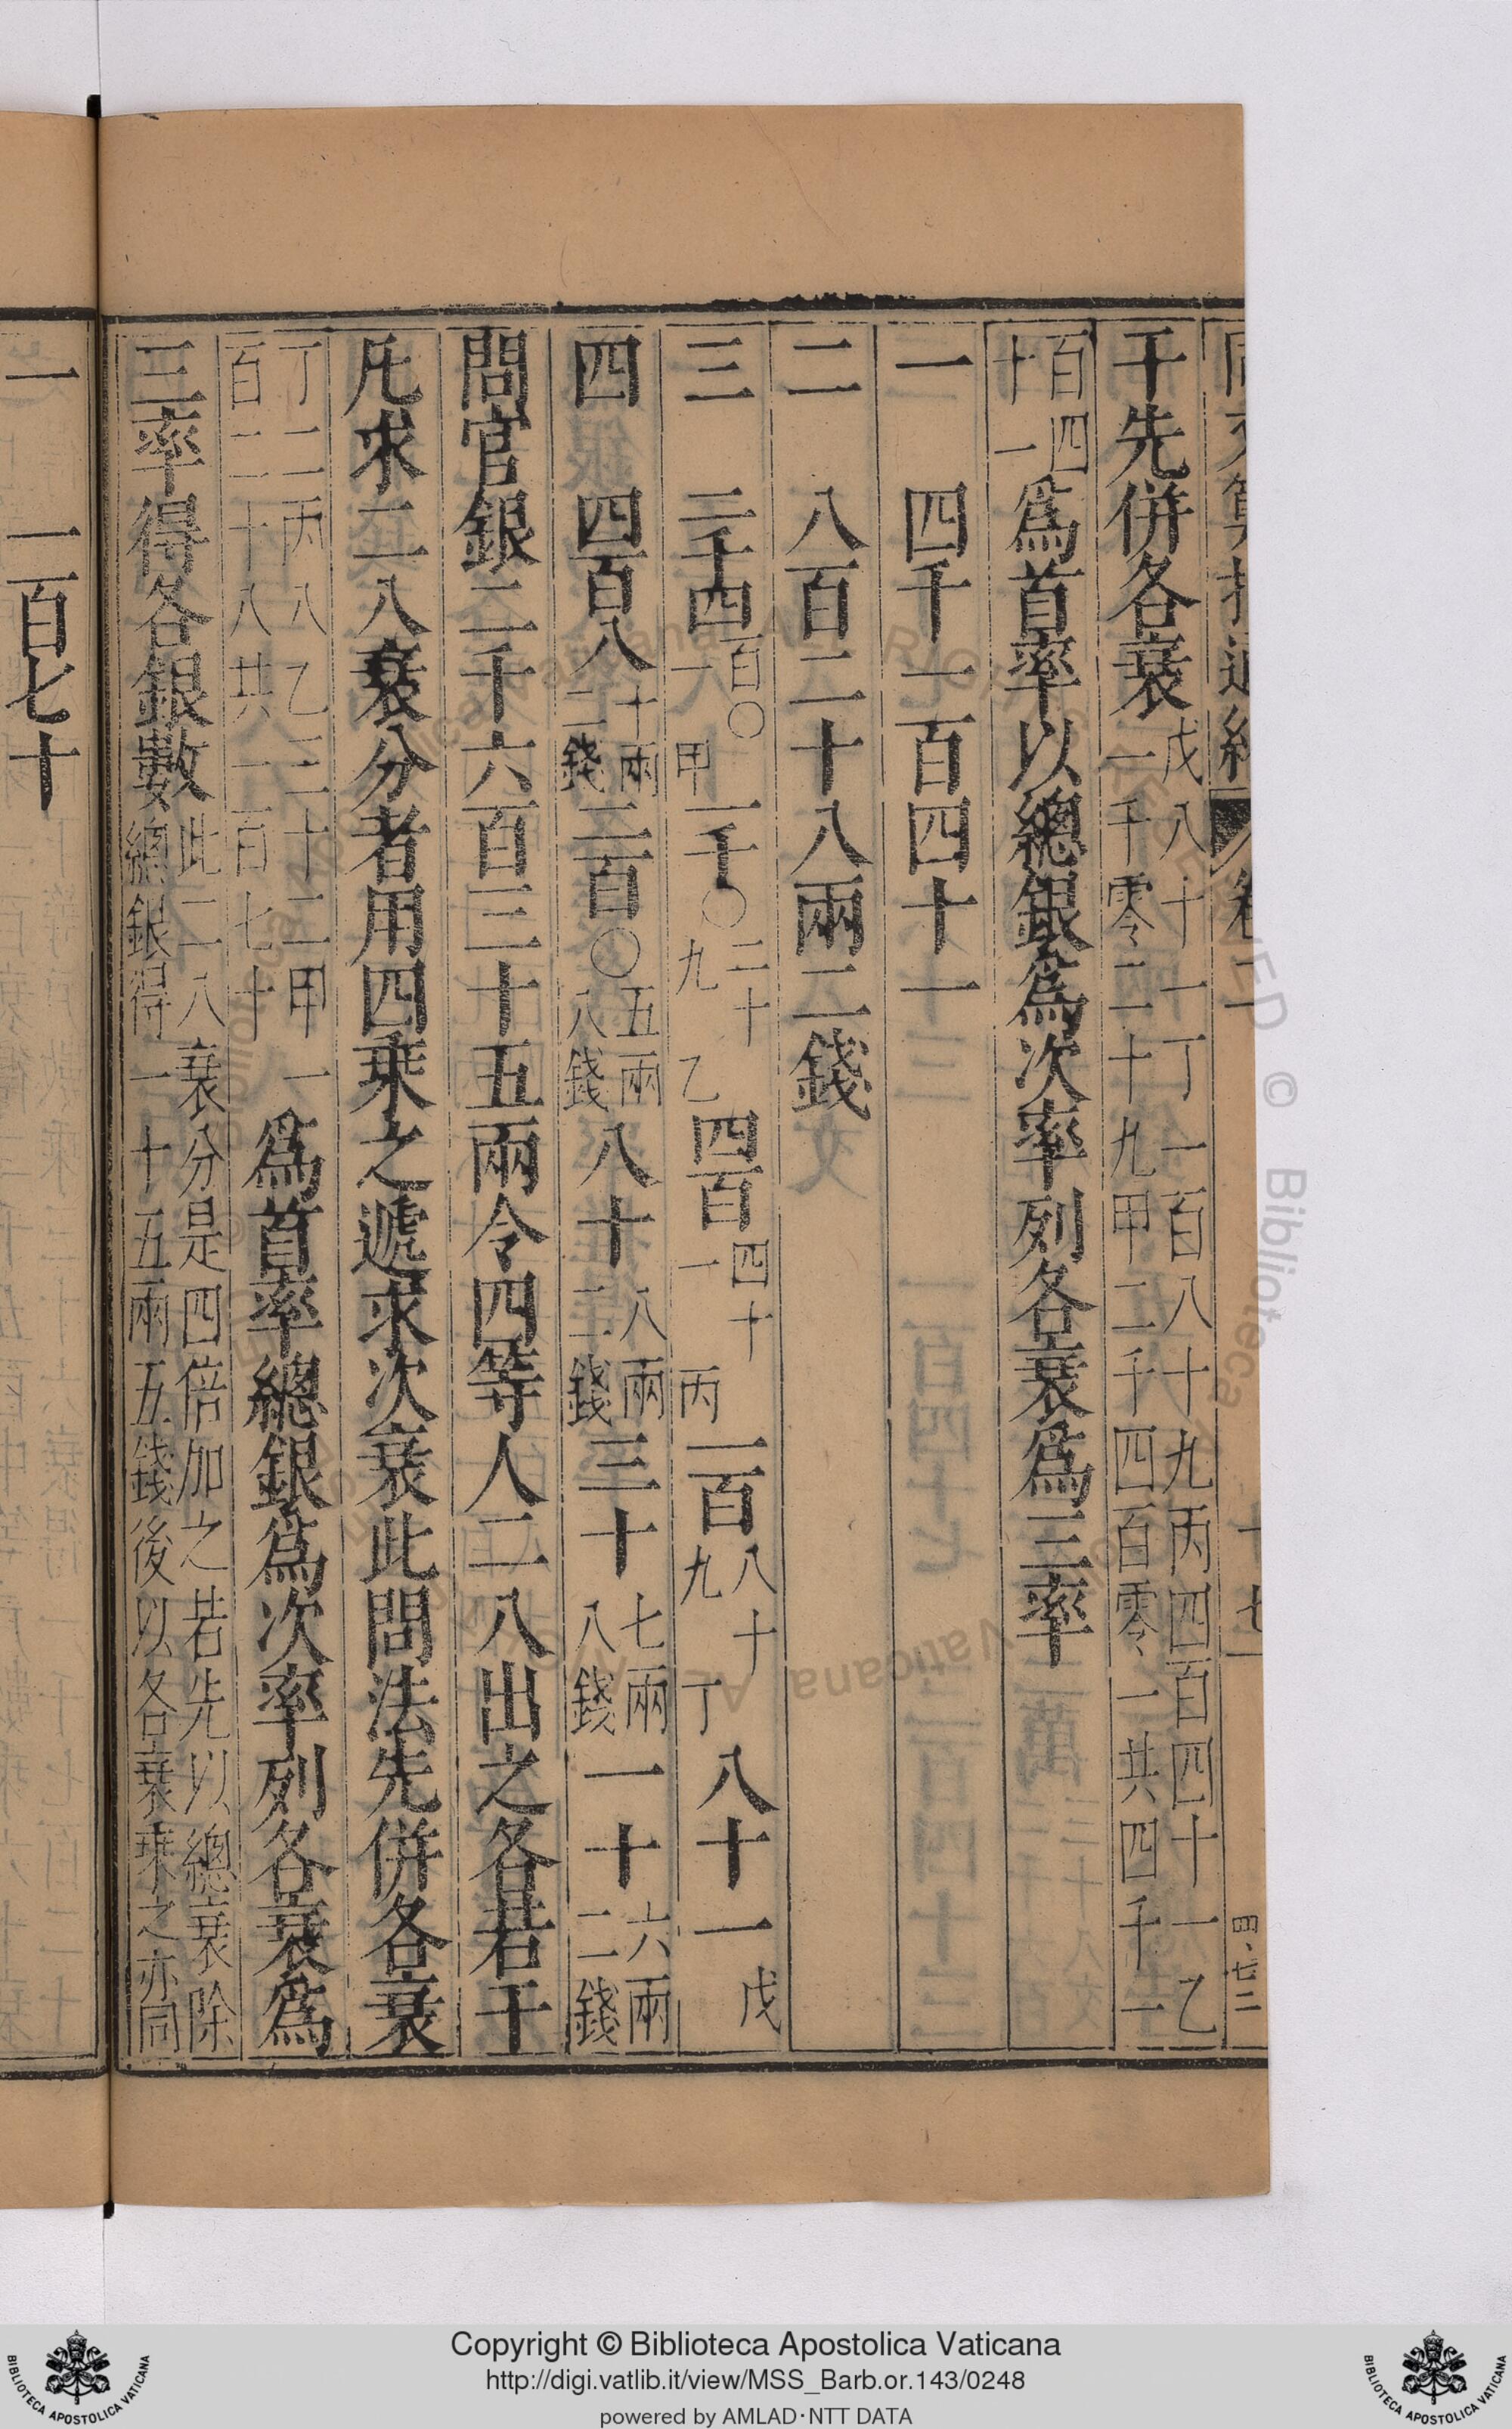 同文算指通編 卷二 十七 四·七二
干先併各衰戊八十一丁一百八十九丙四百四十一乙
一千零二十九甲二千四百零一共四千一
百四十一爲首率以總銀爲次率列各衰爲三率
一 四千一百四十一
二 八百二十八兩二錢
三 二千四百〇一甲 一千〇二十九乙 四百四十一丙 一百八十九丁 八十一戊
四 四百八十兩二錢 二百〇五兩八錢 八十八兩二錢 三十七兩八錢 一十六兩二錢
問官銀二千六百三十五兩令四等人二八出之各若干
凡求二八衰分者用四乘之遞求次衰此問法先併各衰
丁二丙八乙三十二甲一
百二十八共一百七十爲首率總銀爲次率列各衰爲
三率得各銀數此二八衰分是四倍加之若先以總衰除
總銀得一十五兩五錢後以各衰乘之亦同
一 一百七十
Copyright © Biblioteca Apostolica Vaticana
http://digi.vatlib.it/view/MSS_Barb.or.143/0248
powered by AMLAD·NTT DATA
BIBLIOTECA APOSTOLICA VATICANA
BIBLIOTECA APOSTOLICA VATICANA